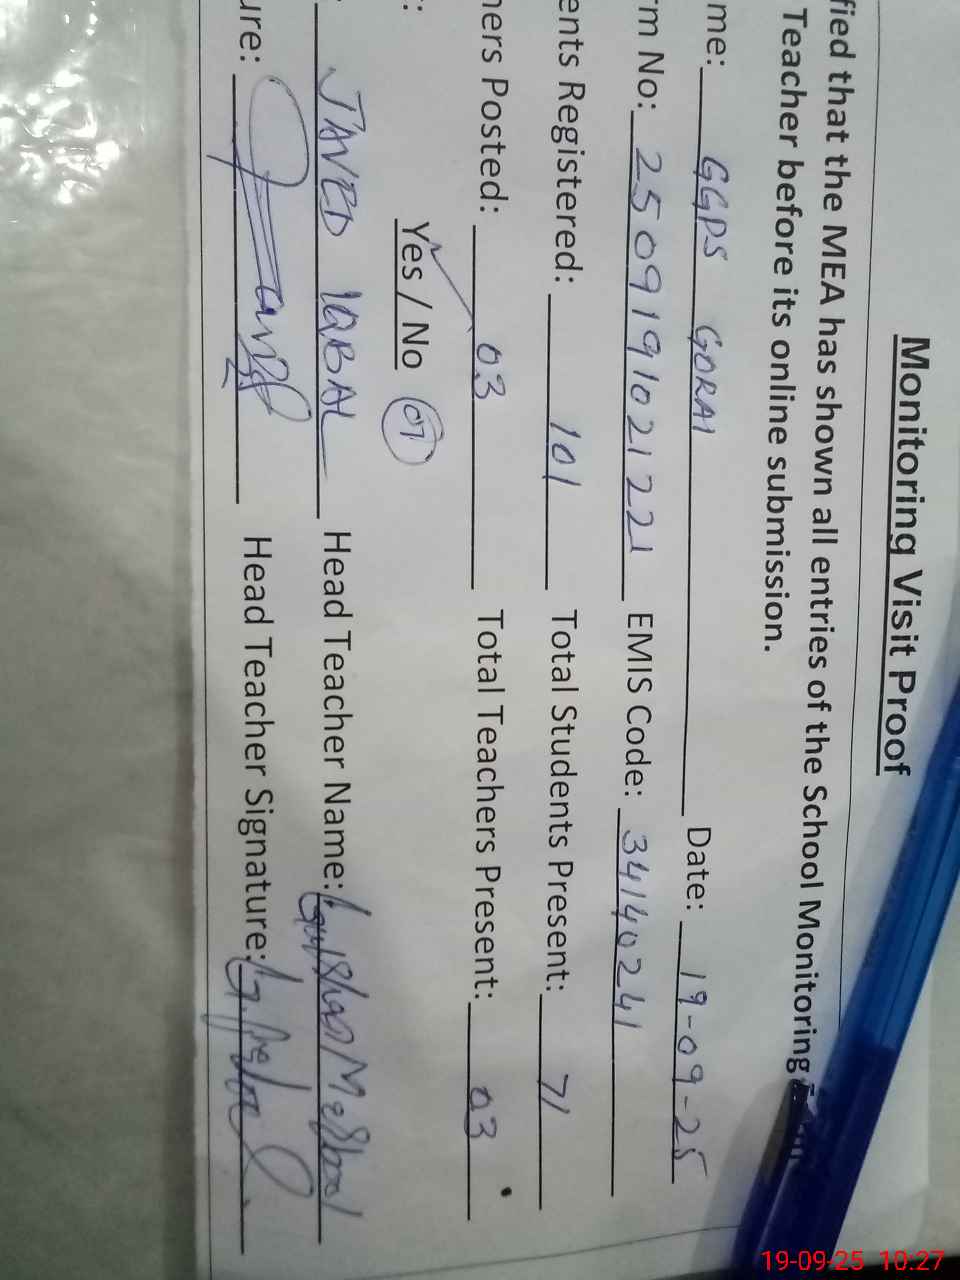 Monitoring Visit Proof
fied that the MEA has shown all entries of the School Monitoring
Teacher before its online submission.
me: GGPS GORAI Date: 19-09-25
rm No: 2509191021221 EMIS Code: 34140241
ents Registered: 101 Total Students Present: 71
hers Posted: 03 Total Teachers Present: 03
: Yes / No 07
: JAVED IQBAL Head Teacher Name: Gulshan
ure: Javed Head Teacher Signature:
19-09-25 10:27